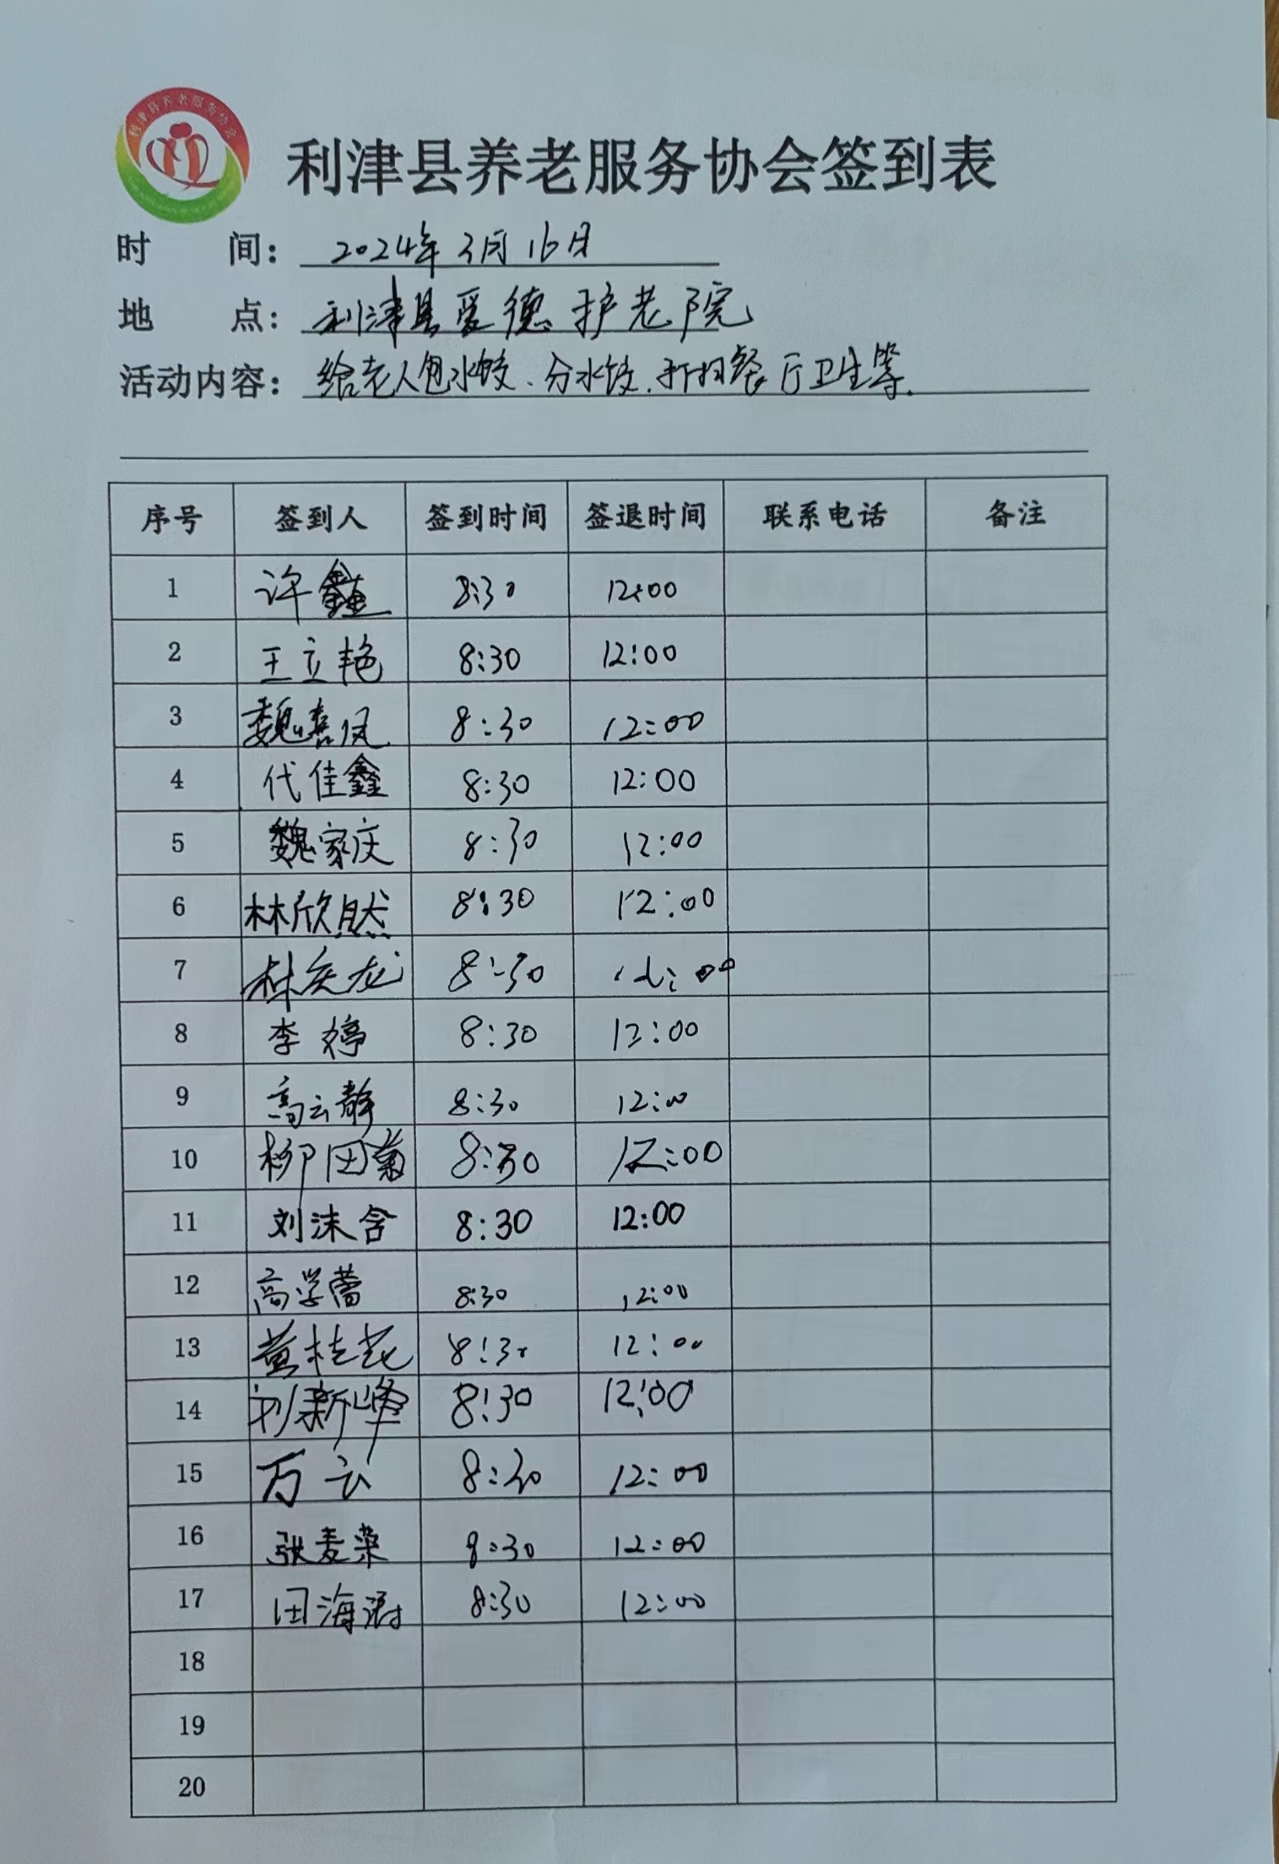 利津县养老服务协会
利津县养老服务协会签到表
时 间: 2024年3月16日
地 点: 利津县爱德护老院
活动内容: 给老人包水饺、分水饺、打扫餐厅卫生等.
序号 签到人 签到时间 签退时间 联系电话 备注
1 许鑫 8:30 12:00
2 王立艳 8:30 12:00
3 魏喜凤 8:30 12:00
4 代佳鑫 8:30 12:00
5 魏家庆 8:30 12:00
6 林欣然 8:30 12:00
7 8:30 12:00
8 李婷 8:30 12:00
9 高云静 8:30 12:00
10 柳田菊 8:30 12:00
11 刘沫含 8:30 12:00
12 高学蕾 8:30 12:00
13 黄桂花 8:30 12:00
14 刘新峰 8:30 12:00
15 万云 8:30 12:00
16 张麦荣 8:30 12:00
17 田海澍 8:30 12:00
18
19
20